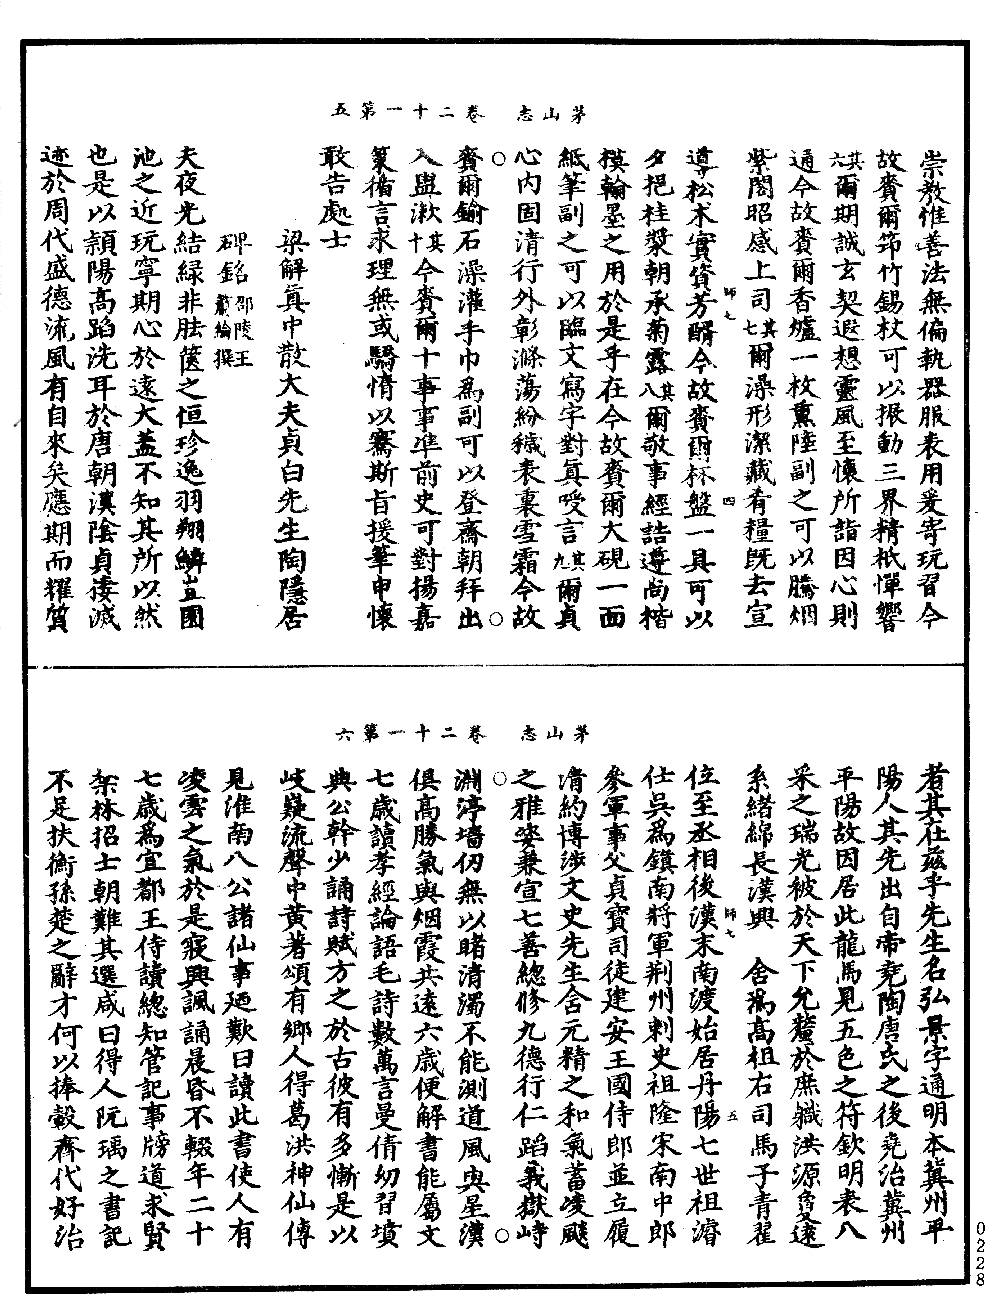 茅山志　卷二十一第五
崇教惟善法無偏執器服表用爰寄玩習今
故賚爾筇竹錫杖可以振動三界精祇憚響
其六爾期誠玄契遐想靈風至懷所詣因心則
通今故賚爾香爐一枚薰陸副之可以騰烟
紫閣昭感上司其七爾澡形潔藏肴糧既去宣
導松朮實資芳醑今故賚爾杯盤一具可以
夕挹桂漿朝承菊露其八爾敬事經誥遵尚楷
模翰墨之用於是乎在今故賚爾大硯一面
紙筆副之可以臨文寫字對真受言其九爾貞
心內固清行外彰滌蕩紛穢表裏雪霜今故
賚爾鍮石澡灌手巾為副可以登齋朝拜出
入盥漱其十今賚爾十事事準前史可對揚嘉
策循言求理無或驕惰以騫斯旨援筆申懷
敢告處士
梁解真中散大夫貞白先生陶隱居
碑銘邵陵王蕭綸撰
夫夜光結綠非胠篋之恒珍逸羽翔鱗豈園
池之近玩寧期心於遠大蓋不知其所以然
也是以潁陽高蹈洗耳於唐朝漢陰貞淒滅
迹於周代盛德流風有自來矣應期而耀質
師七
四
茅山志　卷二十一第六
者其在茲乎先生名弘景字通明本冀州平
陽人其先出自帝堯陶唐氏之後堯治冀州
平陽故因居此龍馬見五色之符欽明表八
采之瑞光被於天下允釐於庶職洪源夐遠
系緒綿長漢興　舍為高祖右司馬子青翟
位至丞相後漢末南渡始居丹陽七世祖濬
仕吳為鎮南將軍荊州刺史祖隆宋南中郎
參軍事父貞寶司徒建安王國侍郎並立履
清約博涉文史先生含元精之和氣蓄凌飈
之雅姿兼宣七善總修九德行仁蹈義嶽峙
淵渟墻仞無以睹清濁不能測道風與星漢
俱高勝氣與烟霞共遠六歲便解書能屬文
七歲讀孝經論語毛詩數萬言曼倩幼習墳
典公幹少誦詩賦方之於古彼有多慚是以
岐嶷流聲中黃著頌有鄉人得葛洪神仙傳
見淮南八公諸仙事迺歎曰讀此書使人有
凌雲之氣於是寢興諷誦晨昏不輟年二十
七歲為宜都王侍讀總知管記事牓道求賢
架林招士朝難其選咸曰得人阮瑀之書記
不足扶衡孫楚之辭才何以捧轂齊代好治
師七
五
0228